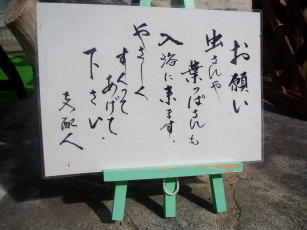 お願い
虫さんや
葉っぱさんも
入浴に来ます。
やさしく
すくって
あげて
下さい。
支配人